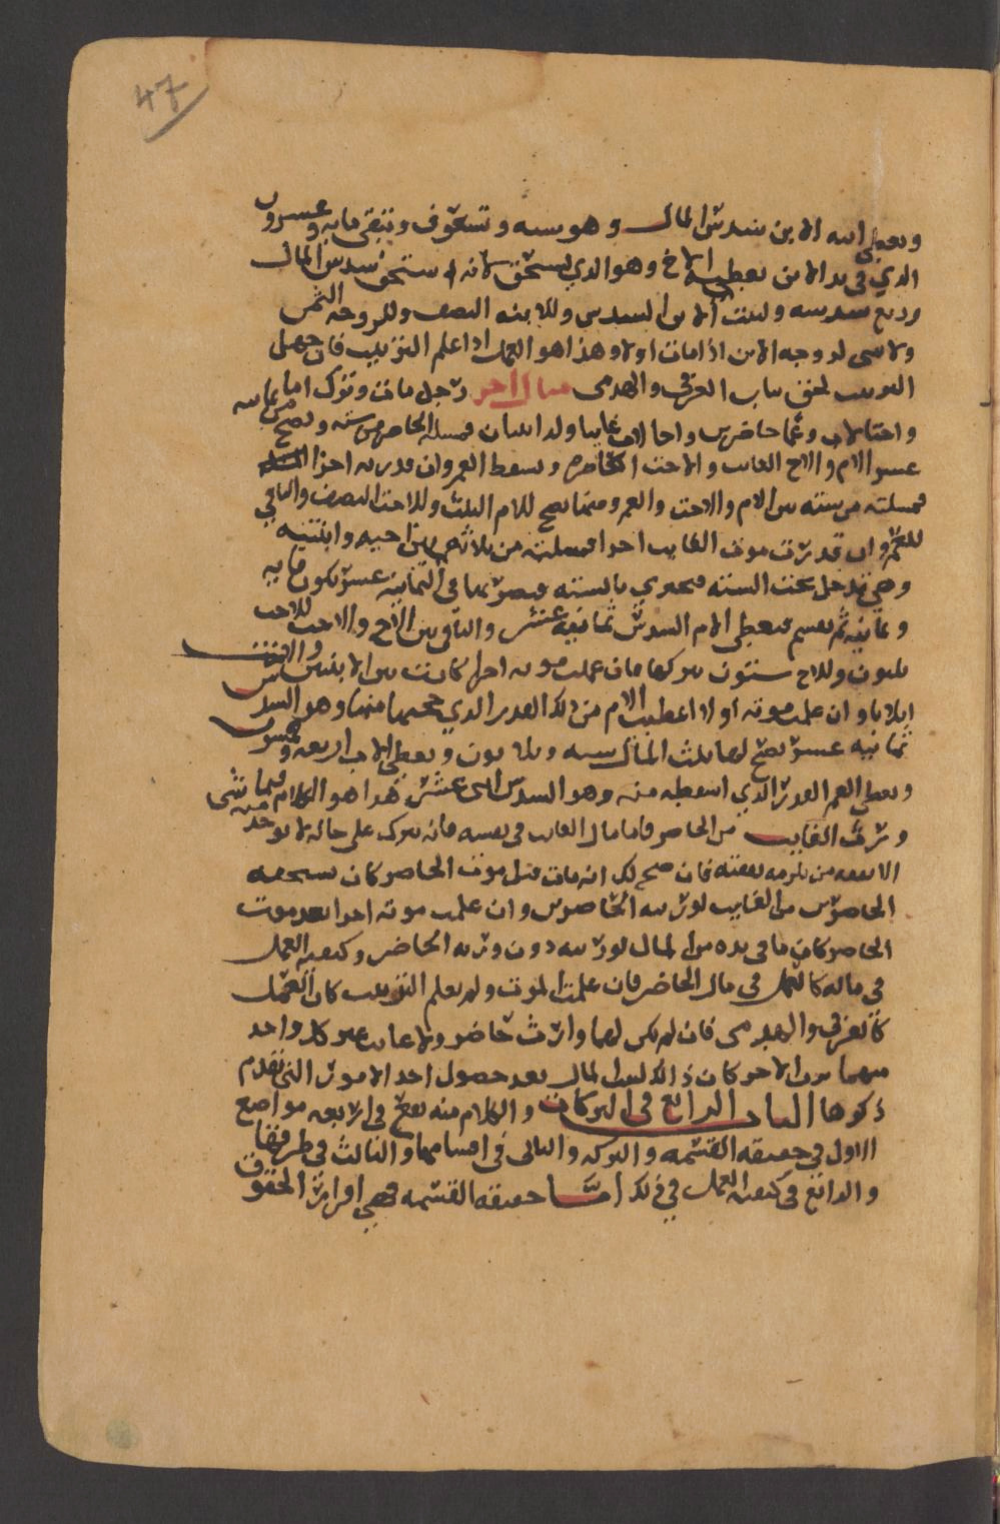 47
ويعطى ابنه الابن سدس المال وهو سبعه وتسعون وتبقى مايه وعشرون
الذي في يد الابن يعطيه الاخ وهو الذي يستحق لانه استحق سدس المال
وربع سدسه ولبنت الابن السدس وللابنه النصف وللزوجه الثمن
ولا شي لزوجه الابن اذا مات اولا وهذا هو العمل اذا علم الترتيب فان جهل
الترتيب لحق بباب الغرقى والهدمى مثال اخر رجل مات وترك اما
واختا لاب وعما حاضرين واخا لاب غايبا ولد ابنتان فمسله الحاضر من سته وتصح من ثمانيه
عشر الام والاخ الغايب والاخت الحاضره ويسقط العم وان قدرته اخرا
فمسلته من سته بين الام والاخت والعم ومنها تصح للام الثلث وللاخت النصف والباقي
للعم وان قدرت موت الغايب اخرا فمسلته من ثلاثه بين اخيه وابنتيه
وهي تدخل تحت السته فتجتزي بالسته فتضربها في الثمانيه عشر تكون مايه
وثمانيه ثم تقسم فتعطى الام السدس ثمانيه عشر والباقي بين الاخ والاخت للاخت
ثلثون وللاخ ستون تتركها فان علمت موته اخرا كانت بين الابنتين والاخت
اثلاثا وان علمت موته اولا اعطيت الام من ذلك القدر الذي حجبها منها وهو السدس
ثمانيه عشر تصح لها ثلث المال سته وثلاثون وتعطى الاخت اربعه وخمسون
ويعطى العم القدر الذي اسقطه منه وهو السدس ثماني عشر هذا هو الكلام فيما
ورث الغايب من الحاضر فاما مال الغايب في نفسه فانه يترك على حاله لا يوخذ منه شي
الا نفقه من تلزمه نفقته فان صح لك انه مات قبل موت الحاضر كان نسخه
الحاضر من الغايب لورثته الحاضرين وان علمت موته اخرا بعد موت
الحاضر كان ما في يده من المال لورثته دون ورثه الحاضر وكيفيه العمل
في ماله كالعمل في مال الحاضر فان علمت الموت ولم تعلم الترتيب كان العمل
كالغرقى والهدمى فان لم يكن لهما وارث حاضر ولا غايب غير كل واحد
منهما من الاخر كان ذلك لبيت المال بعد حصول احد الامور التي تقدم
ذكرها الباب الرابع في التركات والكلام منه يقع في اربعه مواضع
الاول في حقيقه القسمه والتركه والثاني في اقسامهما والثالث في طرقهما
والرابع في كيفيه العمل في ذلك اما حقيقه القسمه فهي افراز الحقوق